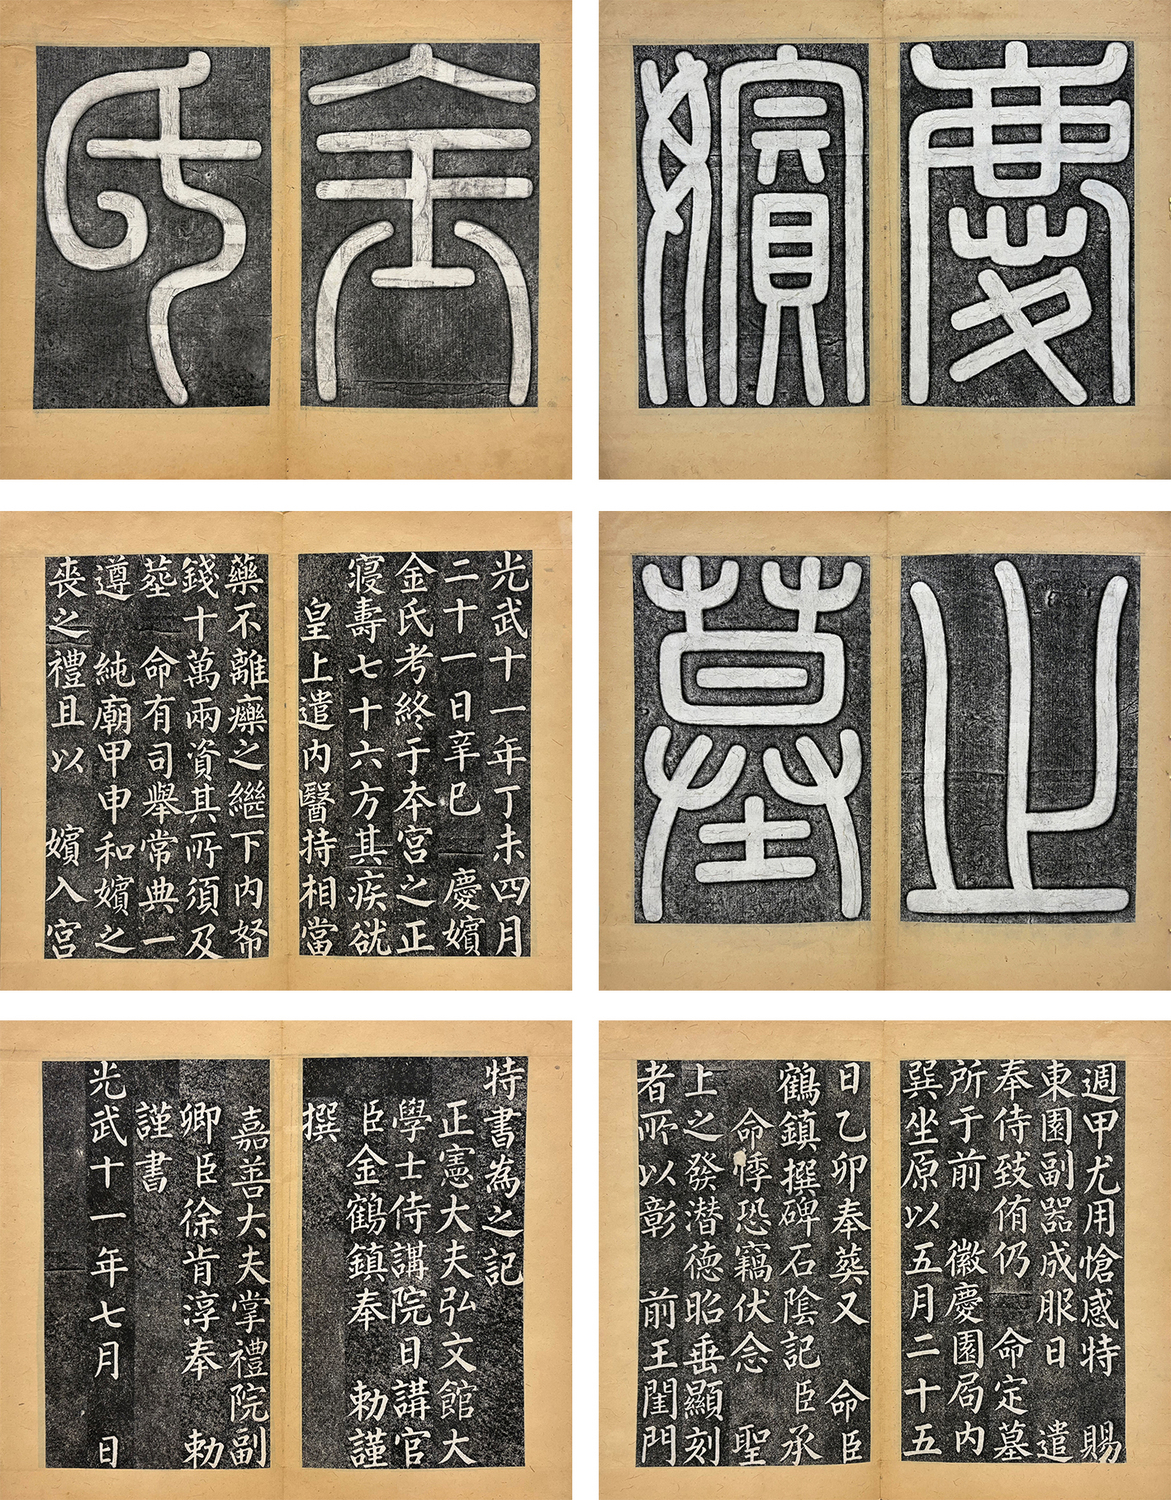 慶
嬪
金
氏
之
墓
光武十一年丁未四月
二十一日辛巳 慶嬪
金氏考終于本宮之正
寢壽七十六方其疾
皇上遣內醫持相當
藥不離之繼下內帑
錢十萬兩資其所須及
塟 命有司舉常典一
遵 純廟甲申和嬪之
喪之禮且以 嬪入宮
週甲尤用愴感特 賜
東園副器成服日 遣
奉侍致侑仍 命定墓
所于前 徽慶園局內
巽坐原以五月二十五
日乙卯奉葬又 命臣
鶴鎮撰碑石陰記臣承
命悸恐竊伏念 聖
上之發潛德昭垂顯刻
者所以彰 前王閨門
特書為之記
正憲大夫弘文館大
學士侍講院日講官
臣金鶴鎮奉 勅謹
撰
嘉善大夫掌禮院副
卿臣徐肯淳奉 勅
謹書
光武十一年七月 日